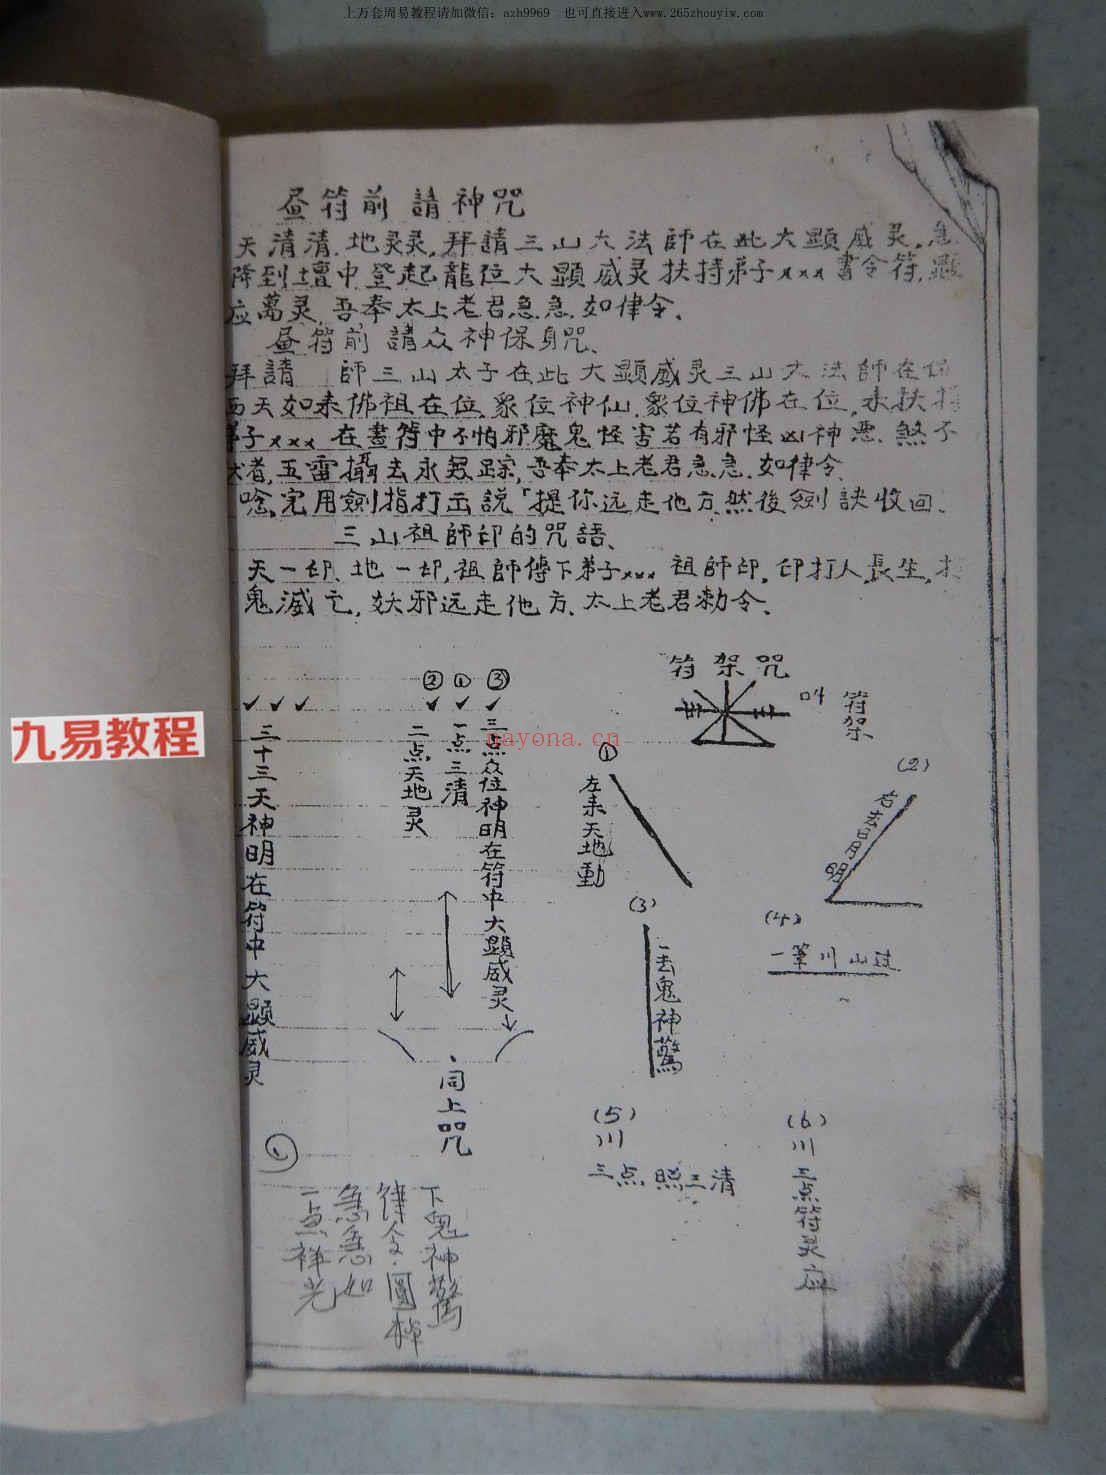 上万套周易教程请加微信：azh9969 也可直接进入www.265zhouyiw.com
昼符前請神咒
天清清.地灵灵,拜請三山大法師在此大顯威灵,急
降到壇中登起龍位大顯威灵扶持弟子xxx書令符,顯
应萬灵,吾奉太上老君急急.如律令、
昼符前請众神保身咒、
拜請 師三山太子在此大顯威灵三山大法師在位
西天如来佛祖在位.眾位神仙.眾位神佛在位,来扶持
弟子xxx在畫符中不怕邪魔鬼怪害若有邪怪凶神悪.煞不
伏者,五雷攝去永無踪,吾奉太上老君急急.如律令、
唸完用劍指打击説「捉你远走他方然後劍訣收回、
三山祖師印的咒語、
天一印、地一印,祖師傳下弟子xxx祖師印,印打人,長生,打
鬼滅亡,妖邪远走他方、太上老君勅令、
符架咒
叫符架
② ① ③
三点众位神明在符中大顯威灵
一点三清
二点天地灵
三十三天神明在符中大顯威灵
同上咒
(1)
左来天地動
(2)
右去日月明
(3)
一去鬼神驚
(4)
一筆川山过
(5)
川
三点照三清
(6)
川
三点符灵应
下鬼神驚
律令.圓
急急如
一点祥光
九易教程
nayona.cn